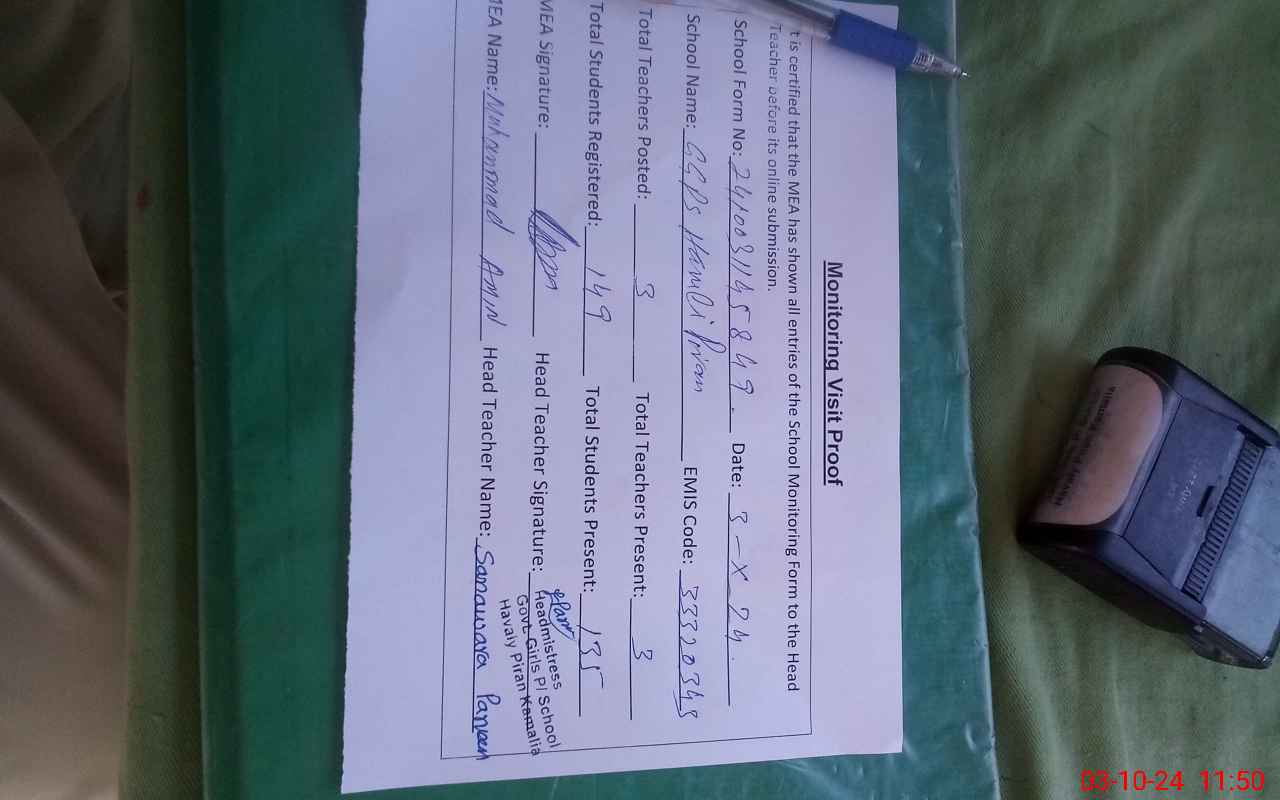 Monitoring Visit Proof
t is certified that the MEA has shown all entries of the School Monitoring Form to the Head
Teacher before its online submission.
School Form No: 241003114 5 8 49. Date: 3-X-24.
School Name: GGPS Havali Piran EMIS Code: 33320348
Total Teachers Posted: 3 Total Teachers Present: 3
Total Students Registered: 149 Total Students Present: 135
MEA Signature: Head Teacher Signature:
Headmistress
Govt. Girls P/ School
Havaiy Piran Kamalia
MEA Name: Muhammad Amin Head Teacher Name: Sanawara Parveen
03-10-24 11:50